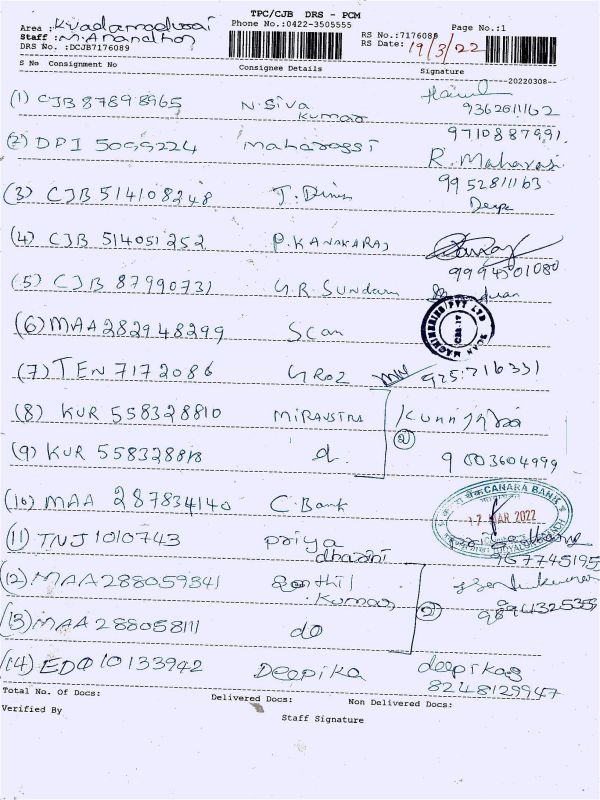 TPC/CJB DRS - PCM
Area : 
Phone No.:0422-3505555
Page No.:1
Staff : M. Anandhan
RS No.:7176089
DRS No. :DCJB7176089
RS Date: 19/3/22
S No Consignment No
Consignee Details
Signature
20220308--
(1) CJB 87898965 N. Siva Kumar
9362611162
(2) DPI 5099224 Maharassi 9710887991
R. Maharasi
(3) CJB 514108248 J. 9952811163
Deepa
(4) CJB 514051252 P. KANAKARAJ
9994501080
(5) CJB 87990731 G.R. Sundam
(6) MAA 282948299 Scan
SCAN MACHINERIES PVT LTD
(7) TEN 7172086 GROZ 925:216331
(8) KUR 558328810
(9) KUR 558328818 d. (2) 9003604999
(10) MAA 287834140 C. Bank
CANARA BANK
17 MAR 2022
(11) TNJ 1010743 Priya dharshi
967745195
(12) MAA 288059341 Senthil Kumar
(2) 9894325355
(13) MAA 288058111 do
(14) EDO 10133942 Deepika deepikas
8248129947
Total No. of Docs:
Delivered Docs:
Non Delivered Docs:
Verified By
Staff Signature